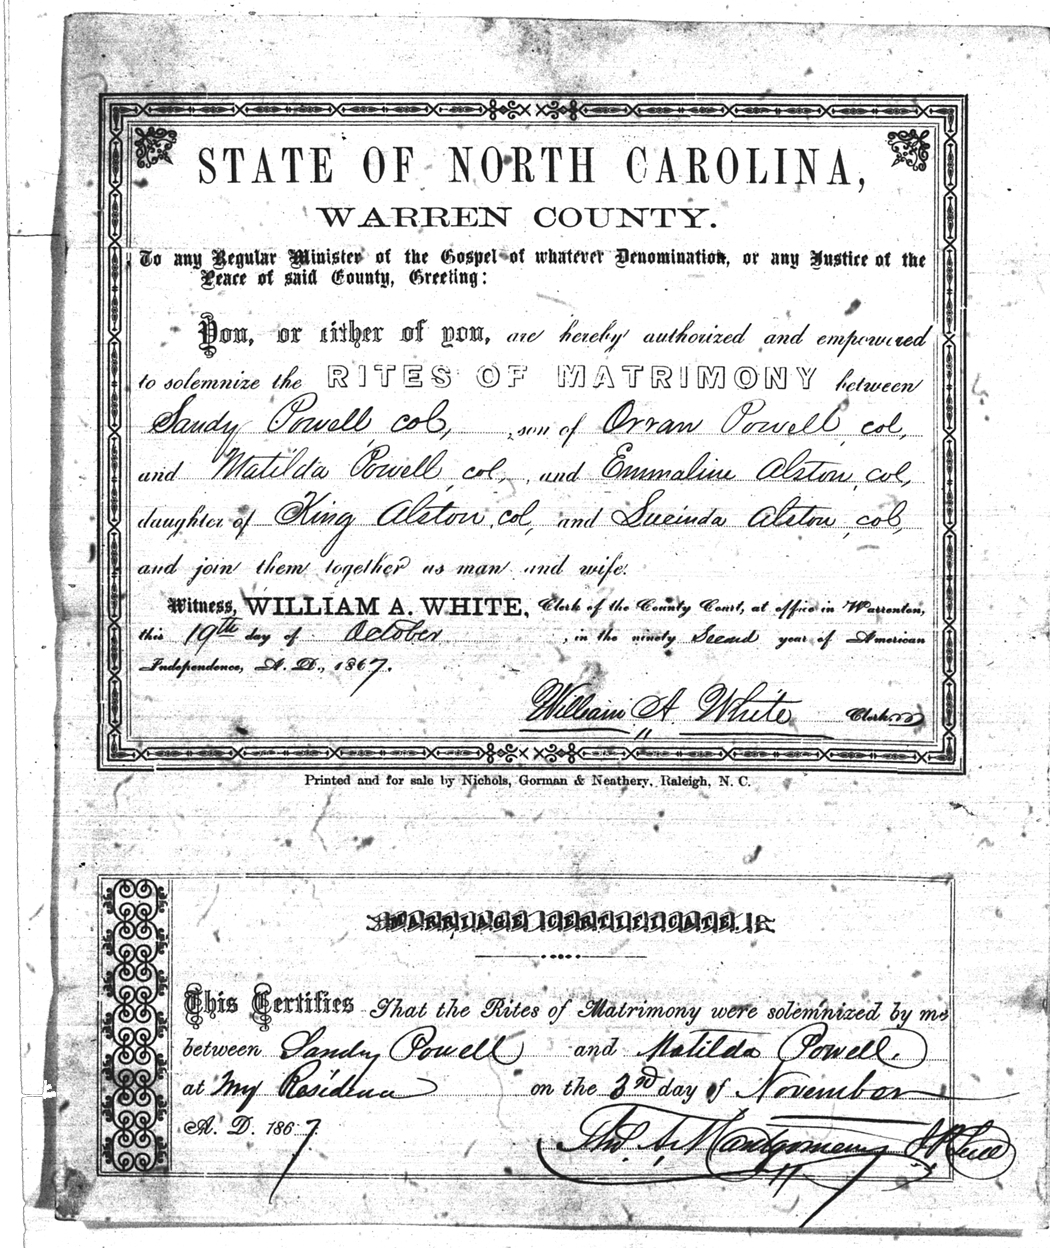 STATE OF NORTH CAROLINA,
WARREN COUNTY.
To any Regular Minister of the Gospel of whatever Denomination, or any Justice of the
Peace of said County, Greeting:
You, or either of you, are hereby authorized and empowered
to solemnize the RITES OF MATRIMONY between
Sandy Powell, col, , son of Orran Powell, col,
and Matilda Powell, col, , and Emmaline Alston, col,
daughter of King Alston, col, and Lucinda Alston, col,
and join them together as man and wife.
Witness, WILLIAM A. WHITE, Clerk of the County Court, at office in Warrenton,
this 19th day of October , in the ninety Second year of American
Independence, A. D., 1867.
William A White Clerk
Printed and for sale by Nichols, Gorman & Neathery, Raleigh, N. C.
MARRIAGE CERTIFICATE.
This Certifies That the Rites of Matrimony were solemnized by me
between Sandy Powell and Matilda Powell.
at My Residence on the 3rd day of November
A. D. 1867
Thos. A. Montgomery